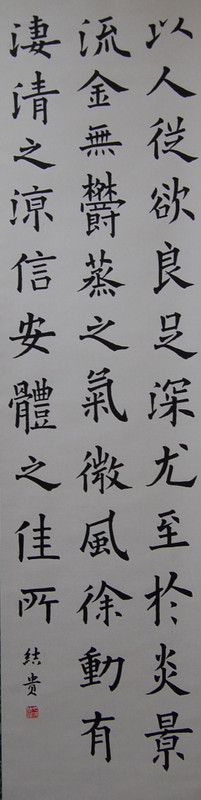 以人從欲良足深尤至於炎景
流金無欝蒸之氣微風徐動有
淒清之涼信安體之佳所
結贵